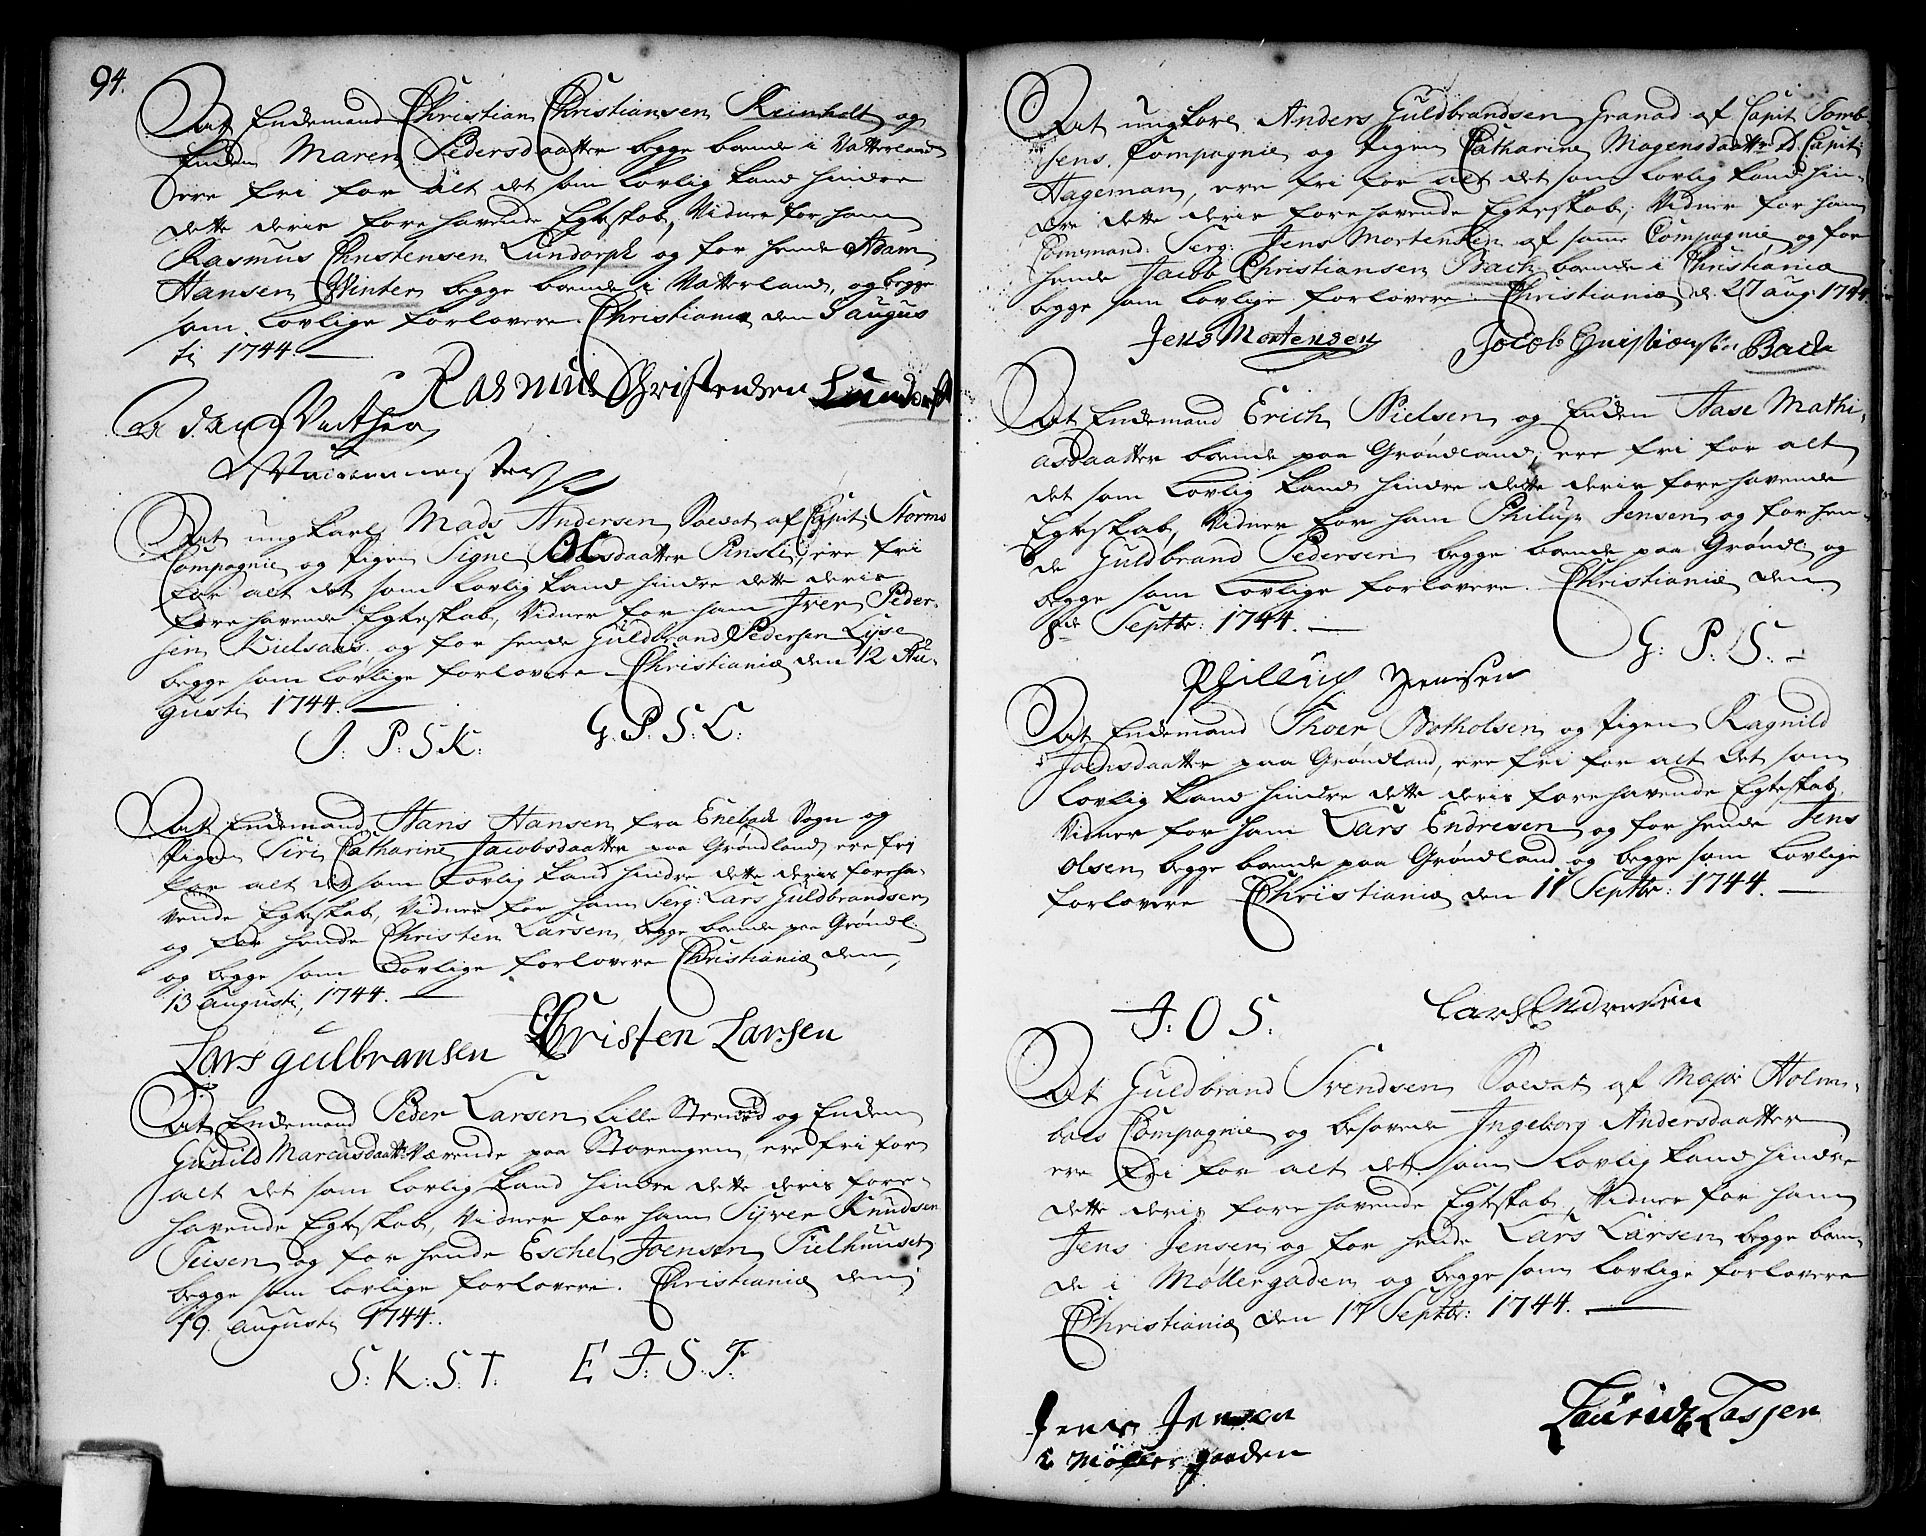 94.
At Enckemand Christian Christiansen Reinholt og
Encken Maren Pedersdaatter begge boende i Vatterland
ere fri for alt det som lovlig kand hindre
dette deris forehavende Egteskab, Vidner for ham
Rasmus Christensen Lundorph og for hende Adam
Hansen Winter begge boende i Vatterland, og begge
som lovlige forlovere. Christiania den 8 augus
ti 1744.
Rasmus Christensen Lundorph
At ungkarl Mads Andersen Soldat af Capit Storms
Compagnie og Pigen Signe Olsdaatter Pinsli, ere fri
for alt det som lovlig kand hindre dette deris
forehavende Egteskab, Vidner for ham Iver Peder-
sen Kielsaas og for hende Guldbrand Pedersen Lyse
begge som lovlige forlovere Christiania den 12 Au-
gusti 1744.
I: P: S K: G. P. S. L:
At Enckemand Hans Hansen fra Enebak Sogn og
Pigen Siri Catharine Jacobsdaatter paa Grønland, ere fri
for alt det som lovlig kand hindre dette deris foreha-
vende Egteskab, Vidner for ham Serg: Lars Guldbrandsen
og for hende Christen Larsen, begge boende paa Grøndl:
og begge som lovlige forlovere Christiania den
13 augusti, 1744.
Lars gulbransen Christen Larsen
At Enckemand Peder Larsen Lille Strømsød og Encken
Gunild Marcusdaatter Værende paa Storengen, ere fri for
alt det som lovlig kand hindre dette deris fore-
havende Egteskab, Vidner for ham Syver Knudsen
Teisen og for hende Eschel Joensen Fielhuuset
begge som lovlige forlovere. Christiania den
19. augusti 1744.
S: K: S: T. E I: S: F:
At ungkarl Anders Guldbrandsen Granad af Capit Tomb-
sens Compagnie og Pigen Catharine Mogensdaatter ved Capit:
Hageman, ere fri for alt det som lovlig kand hin-
dre dette deris forehavende Egteskab, Vidner for ham
Command: Serg: Jens Mortensen af samme Compagnie og for
hende Jacob Christiansen Bach boende i Christiania
begge som lovlige forlovere. Christiania d. 27 aug: 1744.
Jens Mortensen Jacob Christiansen Bach
At Enckemand Erich Nielsen og Encken Aase Mathi-
asdaatter boende paa Grøndland, ere fri for alt
det som lovlig kand hindre dette deris forehavende
Egteskab, Vidner for ham Philup Jensen og for hen-
de Guldbrand Pedersen begge boende paa Grøndl: og
begge som lovlige forlovere. Christiania den
8de Septbr: 1744.
G: P: S.
Phillup Jensen
At Enckemand Thoer Botholsen og Pigen Ragnild
Joensdaatter paa Grøndland, ere fri for alt det som
lovlig kand hindre dette deris forehavende Egteskab.
Vidner for ham Lars Endresen og for hende Jens
Olsen begge boende paa Grøndland og begge som lovlige
forlovere Christiania den 11 Septbr: 1744.
I: O S. Lars Endresen
At Guldbrand Svendsen Soldat af Major Holm-
boes Compagnie og besovede Ingeborg Andersdaatter
ere fri for alt det som lovlig kand hindre
dette deris forehavende Egteskab, Vidner for ham
Jens Jensen og for hende Lars Larsen begge boen-
de i Møllergaden og begge som lovlige forlovere
Christiania den 17 Septbr: 1744.
Jens Jensen Lauridz Lassen
i Møller gaaden